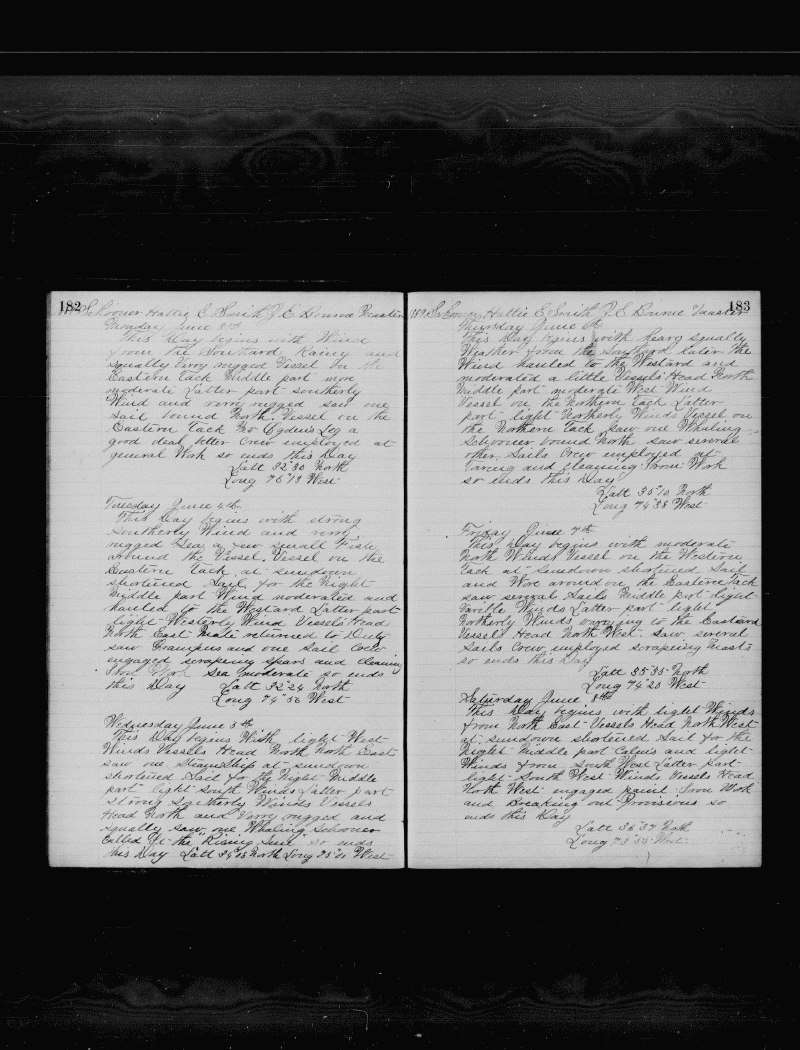 182 Schooner Hattie E. Smith J. E. Master
Monday June 3rd
This Day begins with Wind
from the Southard Rainey and
Squally Verry rugged Vessel on the
Eastern Tack Middle part more
moderate Latter part Southerly
Wind and verry rugged saw one
Sail bound North. Vessel on the
Eastern Tack Leg a
good deal better Crew employed at
general Work so ends this Day
Latt 32°30 North
Long 75°13 West
Tuesday June 4th
This Day begins with strong
Southerly Wind and verry
rugged Sea a few small Fish
around the Vessel. Vessel on the
Eastern Tack at sundown
shortened Sail for the Night
Middle part Wind moderated and
hauled to the Westard Latter part
light Westerly Wind Vessels Head
North East Mate returned to Duty
saw Grampus and one Sail Crew
engaged scrapeing spars and cleaning
Iron Work Sea moderate so ends
this Day Latt 32°24 North
Long 74°56 West
Wednesday June 5th
This Day begins With light West
Winds Vessels Head North North East
saw one SteamShip at sundown
shortened Sail for the Night Middle
part light South Winds Latter part
Strong Southerly Winds Vessels
Head North and Verry rugged and
squally saw one Whaling Schooner
called the Rising Sun so ends
this Day Latt North Long West
183 Schooner Hattie E. Smith J. E. Master
Thursday June 6th
This Day begins with heavy squally
Weather from the Southard later the
Wind hauled to the Westard and
moderated a little Vessels Head North
Middle part moderate West Wind
Vessel on the Northern Tack Latter
part light Northerly Winds Vessel on
the Northern Tack saw one Whaling
Schooner bound North saw several
other Sails Crew employed at
Taring and cleaning Iron Work
so ends this Day
Latt 35°10 North
Long 74°38 West
Friday June 7th
This Day begins with moderate
North Winds Vessel on the Western
Tack at Sundown shortened Sail
and Wore around on the Eastern Tack
saw several Sails Middle part light
Varible Winds Latter part light
Northerly Winds varrying to the Eastard
Vessels Head North West. saw several
Sails Crew employed scrapeing Masts
so ends this Day
Latt 35°35 North
Long 74°20 West
Saturday June 8th
This Day begins with light Winds
from North East Vessels Head North West
at sundown shortened Sail for the
Night Middle part Calms and light
Winds from South West Latter part
light South West Winds Vessels Head
North West engaged paint Iron Work
and Breaking out Provisions so
ends this Day
Latt 36°37 North
Long West